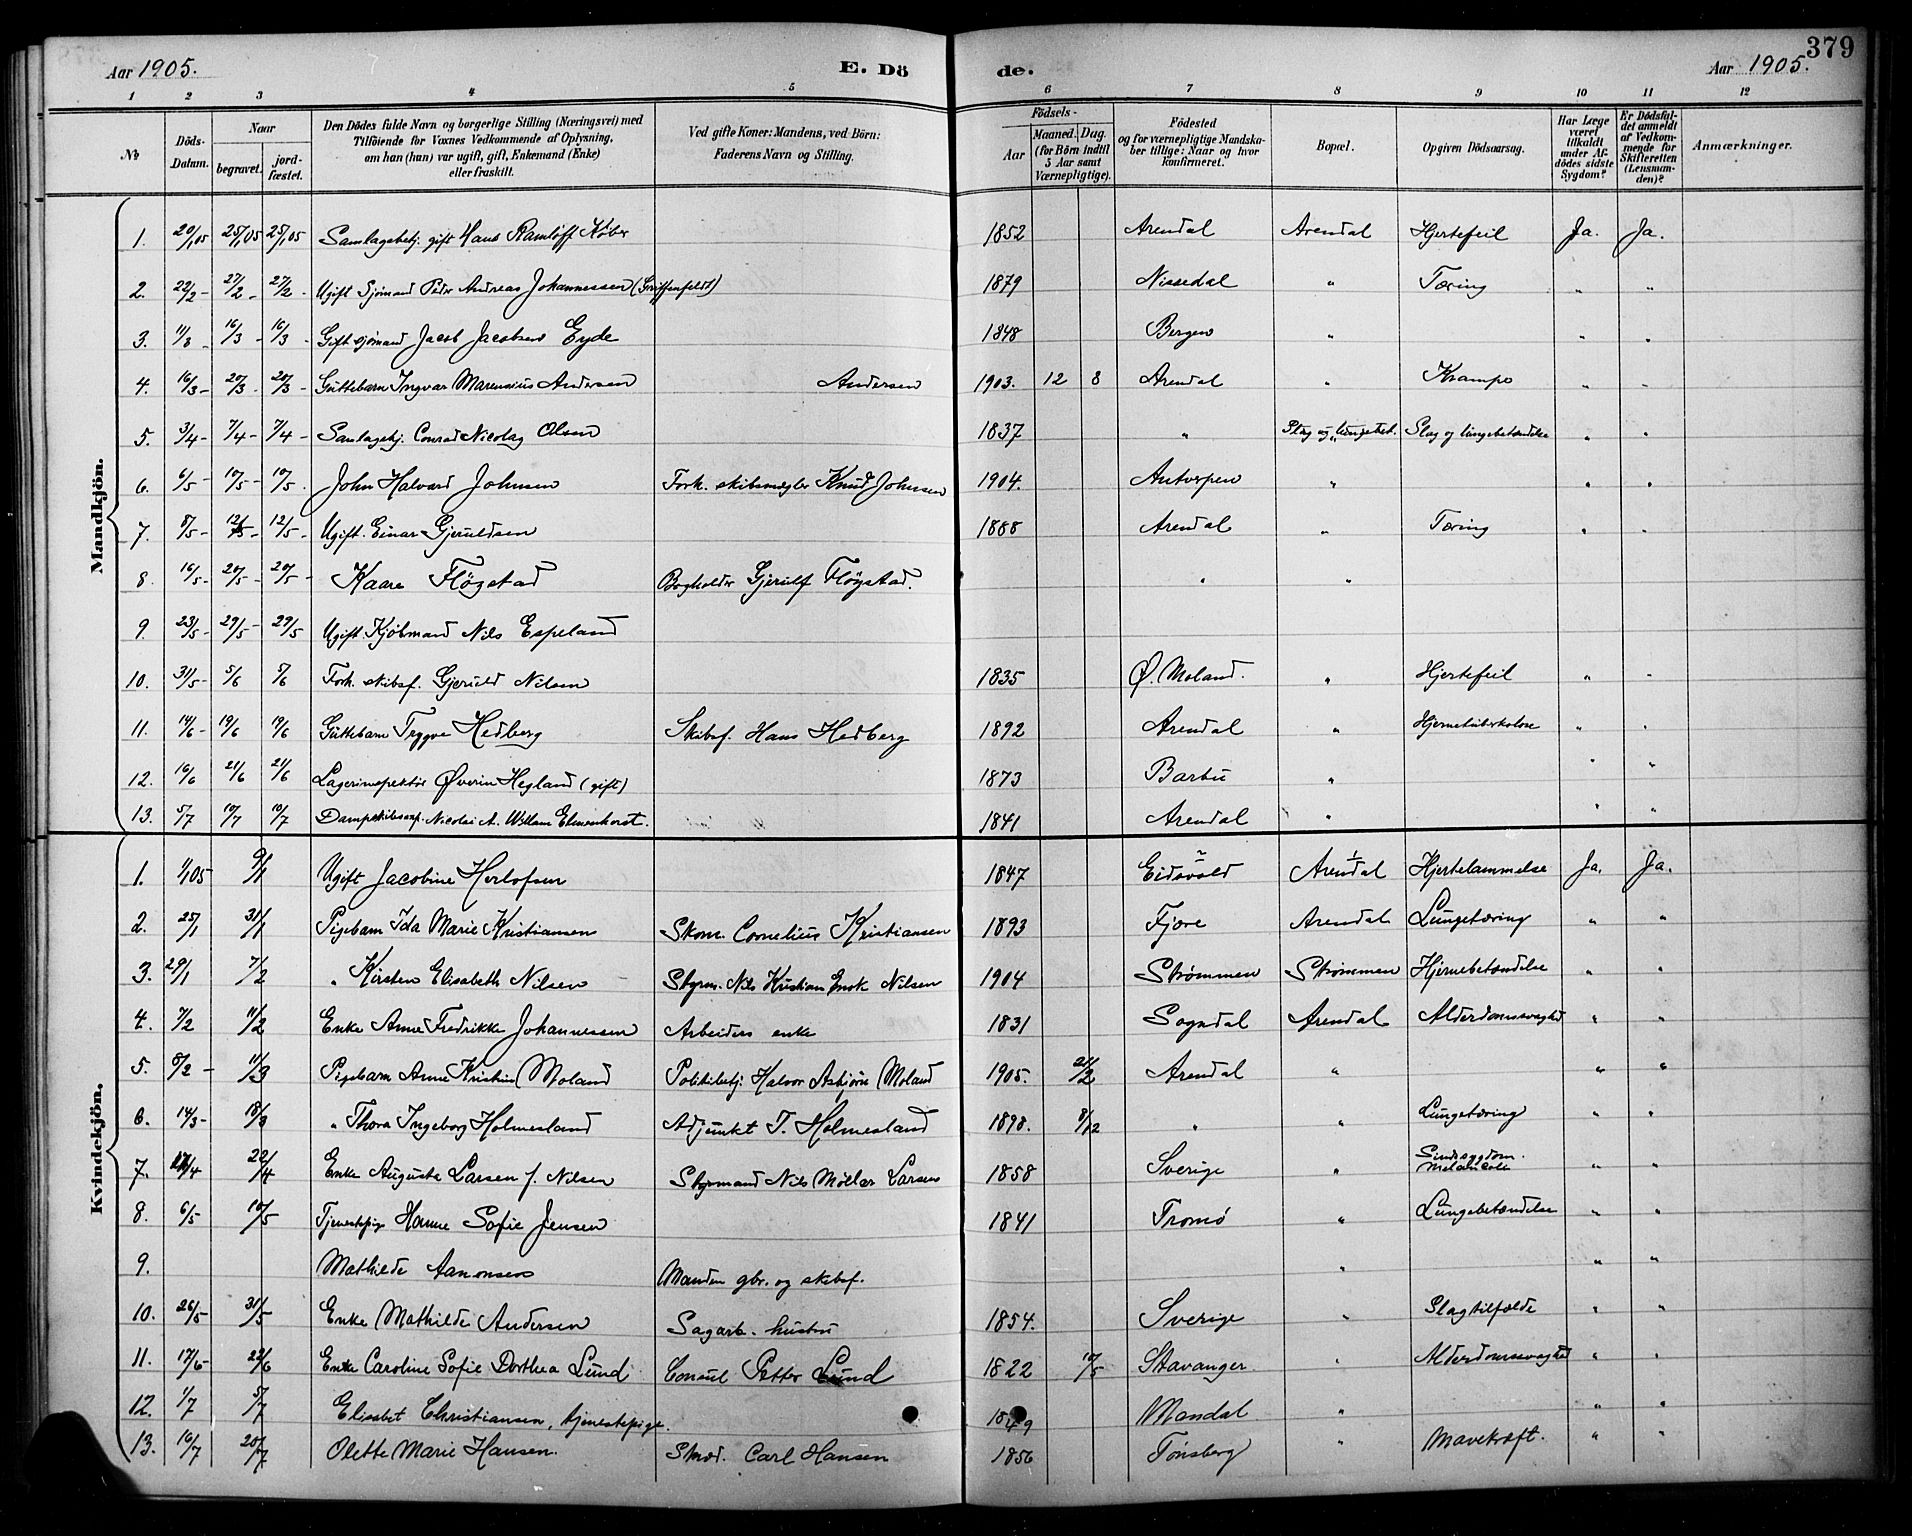 379
Aar 1905. E. Dö de. Aar 1905.
1 2 3 4 5 6 7 8 9 10 11 12
No Döds-Datum. Naar begravet. jord-fæstet. Den Dödes fulde Navn og borgerlige Stilling (Næringsvei) med Tilföiende for Voxnes Vedkommende af Oplysning, om han (hun) var ugift, gift, Enkemand (Enke) eller fraskilt. Ved gifte Koner: Mandens, ved Börn: Faderens Navn og Stilling. Födsels- Aar Maaned. Dag. (for Börn indtil 5 Aar samt Værnepligtige). Födested og for værnepligtige Mandskaber tillige: Naar og hvor konfirmeret. Bopæl. Opgiven Dödsaarsag. Har Læge været tilkaldt under Afdödes sidste Sygdom? Er Dödsfaldet anmeldt af Vedkommende for Skifteretten (Lensmanden)? Anmærkninger.
Mandkjön.
1. 20/1 05 25/1 05 25/1 05 Samlagsbetj. gift Hans Ramløff Køber 1852 Arendal Arendal Hjertefeil Ja. Ja.
2. 22/2 - 27/2 - 27/2 - Ugift Sjømand Peder Andreas Johannessen (Greiffenfeldt) 1879 Nissedal " Tæring " "
3. 11/3 - 16/3 - 16/3 - Gift sjømand Jacob Jacobsen Eyde 1848 Bergen " " "
4. 16/3 - 20/3 - 20/3 - Guttebarn Ingvar Marensius Andersen Andersen 1903. 12 8 Arendal " Krampe " "
5. 3/4 - 7/4 - 7/4 - Samlagsbtj. Conrad Nicolay Olsen 1837 " Slag og lungebet. Slag og lungebetændelse " "
6. 6/5 - 10/5 - 10/5 - John Halvard Johnsen Forh. skibsmægler Knud Johnsen 1904. Antverpen " " "
7. 8/5 - 12/5 - 12/5 - Ugift. Einar Gjeruldsen 1888 Arendal " Tæring " "
8. 16/5 - 20/5 - 20/5 - Kaare Fløgstad Bogholder Gjerulf Fløgstad. " "
9. 23/5 - 29/5 - 29/5 Ugift. Kjøbmand Nils Espeland
10. 31/5 - 5/6 5/6 Forh. skibsf. Gjeruld Nilsen 1835 Ø. Moland. " Hjertefeil " "
11. 14/6 - 19/6 19/6 Guttebarn Trygve Hedberg Skibsf. Hans Hedberg 1892 Arendal " Hjernetuberkolose " "
12. 16/6 21/6 21/6 Lagerinspektør Øverin Hegland (gift) 1873 Barbu " " "
13. 5/7 10/7 10/7 Dampskibsexp. Nicolai A. Willam Elmenhorst. 1841 Arendal " " "
Kvindekjön.
1. 1/1 05 9/1 Ugift Jacobine Herlofsen 1847 Eidsvold Arendal Hjertelammelse Ja. Ja.
2. 25/1 31/1 Pigebarn Ida Marie Kristiansen Skom. Cornelius Kristiansen 1893 Fjære Arendal Lungetæring " "
3. 29/1 7/2 " Kirsten Elisabeth Nilsen Styrm. Nils Kristian Enok Nilsen 1904 Strømmen Strømmen Hjernebetændelse " "
4. 7/2 11/2 Enke Anne Fredrikke Johannessen Arbeiders enke 1831 Sogndal Arendal Alderdomssvaghed " "
5. 8/2 - 11/3 Pigebarn Anne Kristine Moland Politibetj. Halvor Asbjørn Moland 1905. 21/2 Arendal " " "
6. 14/3 - 18/3 " Thora Ingeborg Holmesland Adjunkt T. Holmesland 1898. 8/12 " " Lungetæring " "
7. 17/4 22/4 Enke Auguste Larsen f. Nilsen Styrmand Nils Møller Larsen 1858 Sverige " Sindssygdom. Melancoli " "
8. 6/5 10/5 Tjenestepige Hanne Sofie Jensen 1841 Tromø " Lungebetændelse " "
9. Mathilde Aanonsen Manden gbr. og skibsf. " " "
10. 26/5 31/5 Enke Mathilde Andersen Sagarb. hustru 1854. Sverige " Slagtilfælde " "
11. 17/6 - 22/6 Enke Caroline Sofie Dorthea Lund Consul Petter Lund 1822 10/5 Stavanger " Alderdomssvaghed " "
12. 1/7 5/7 Elisabet Christiansen, tjenestepige. 1849 Mandal " " "
13. 16/7 20/7 Olette Marie Hansen. Skræd. Carl Hansen 1856 Tønsberg " Mavekræft. " "